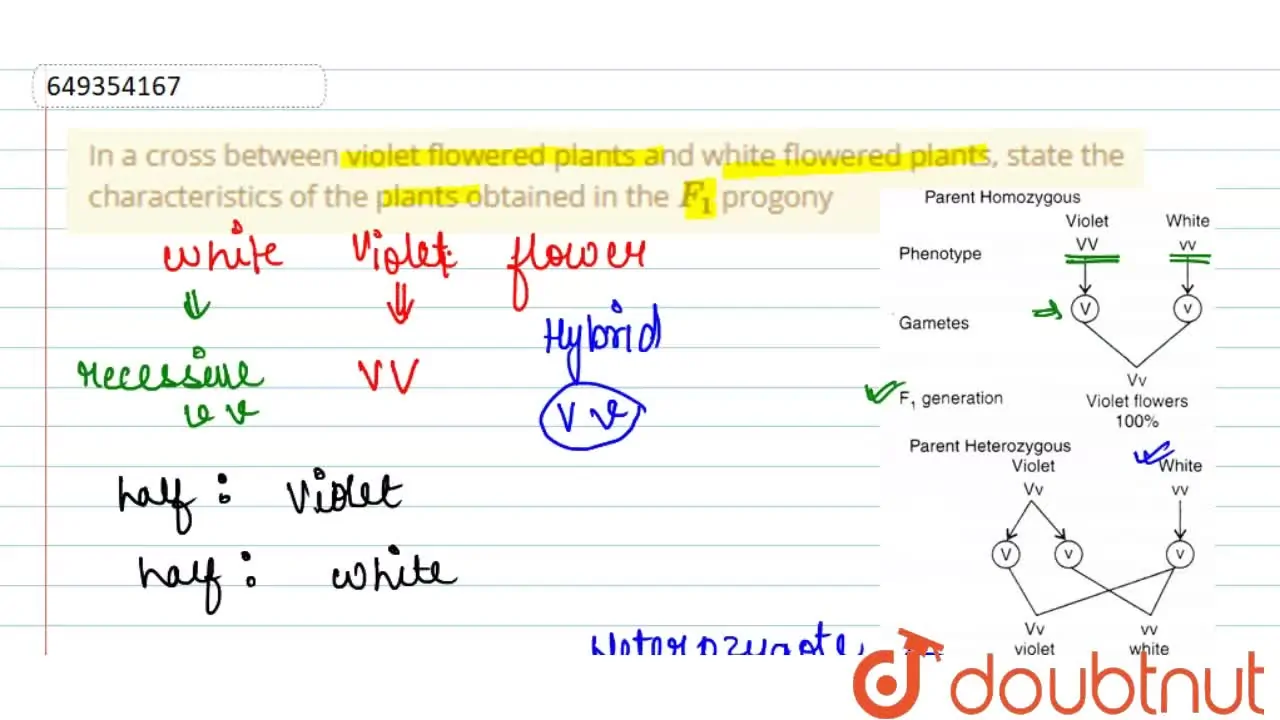 649354167
In a cross between violet flowered plants and white flowered plants, state the
characteristics of the plants obtained in the F₁ progony
white violet flower
recessive VV
v v
Hybrid
V v
half : violet
half : white
Parent Homozygous
Violet White
Phenotype VV vv
Gametes V v
Vv
F₁ generation Violet flowers
100%
Parent Heterozygous
Violet White
Vv vv
V v v
Vv vv
violet white
Heterozygote
doubtnut